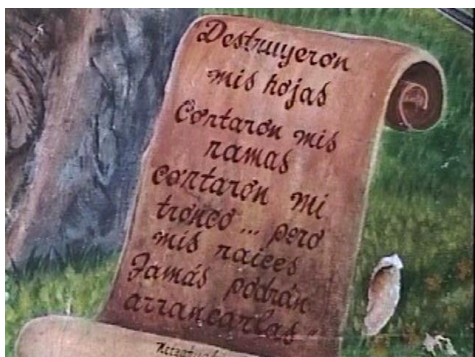 Destruyeron
mis hojas
Cortaron mis
ramas
cortaron mi
tronco... pero
mis raices
Jamás podrán
arrancarlas